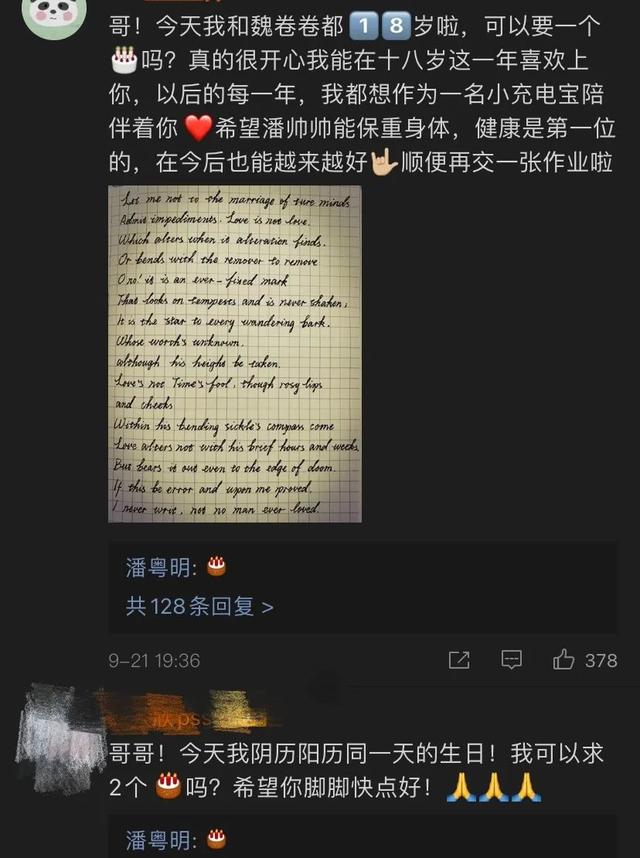 哥！今天我和魏卷卷都1️⃣8️⃣岁啦，可以要一个
🎂吗？真的很开心我能在十八岁这一年喜欢上
你，以后的每一年，我都想作为一名小充电宝陪
伴着你❤️希望潘帅帅能保重身体，健康是第一位
的，在今后也能越来越好🤟🏼顺便再交一张作业啦
Let me not to the marriage of ture minds
Admit impediments. Love is not love.
Which alters when it alteration finds.
Or bends with the remover to remove
O no! it is an ever-fixed mark
That looks on tempests and is never shaken,
It is the star to every wandering bark.
Whose worth's unknown.
although his height be taken.
Love's not Time's fool, though rosy lips
and cheeks
Within his bending sickle's compass come
Love alters not with his brief hours and weeks,
But bears it out even to the edge of doom.
If this be error and upon me proved,
I never writ, not no man ever loved.
潘粤明: 🎂
共128条回复 >
9-21 19:36
378
哥哥！今天我阴历阳历同一天的生日！我可以求
2个🎂吗？希望你脚脚快点好！🙏🙏🙏
潘粤明: 🎂